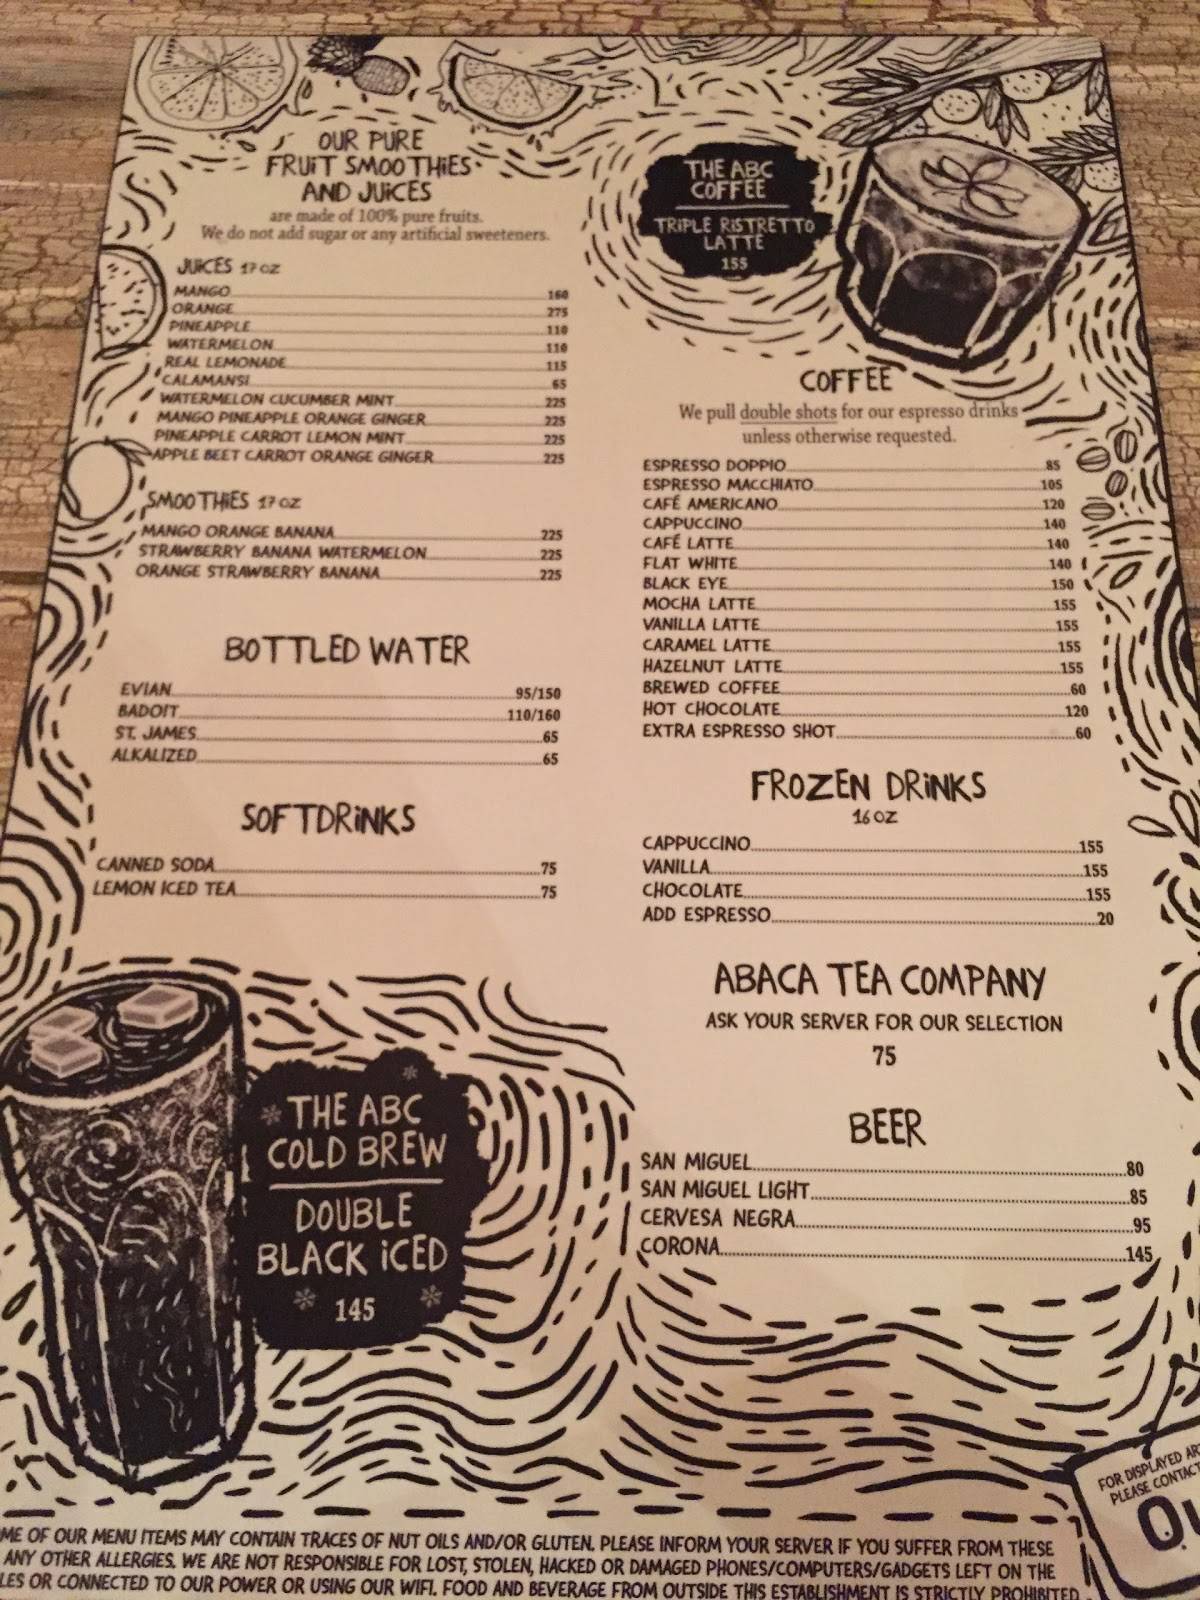 OUR PURE
FRUIT SMOOTHIES
AND JUICES
are made of 100% pure fruits.
We do not add sugar or any artificial sweeteners.
JUICES 17 OZ
MANGO 160
ORANGE 275
PINEAPPLE 110
WATERMELON 110
REAL LEMONADE 115
CALAMANSI 65
WATERMELON CUCUMBER MINT 225
MANGO PINEAPPLE ORANGE GINGER 225
PINEAPPLE CARROT LEMON MINT 225
APPLE BEET CARROT ORANGE GINGER 225
SMOOTHIES 17 OZ
MANGO ORANGE BANANA 225
STRAWBERRY BANANA WATERMELON 225
ORANGE STRAWBERRY BANANA 225
BOTTLED WATER
EVIAN 95/150
BADOIT 110/160
ST. JAMES 65
ALKALIZED 65
SOFTDRINKS
CANNED SODA 75
LEMON ICED TEA 75
THE ABC
COLD BREW
DOUBLE
BLACK ICED
145
THE ABC
COFFEE
TRIPLE RISTRETTO
LATTE
155
COFFEE
We pull double shots for our espresso drinks
unless otherwise requested.
ESPRESSO DOPPIO 85
ESPRESSO MACCHIATO 105
CAFÉ AMERICANO 120
CAPPUCCINO 140
CAFÉ LATTE 140
FLAT WHITE 140
BLACK EYE 150
MOCHA LATTE 155
VANILLA LATTE 155
CARAMEL LATTE 155
HAZELNUT LATTE 155
BREWED COFFEE 60
HOT CHOCOLATE 120
EXTRA ESPRESSO SHOT 60
FROZEN DRINKS
16 OZ
CAPPUCCINO 155
VANILLA 155
CHOCOLATE 155
ADD ESPRESSO 20
ABACA TEA COMPANY
ASK YOUR SERVER FOR OUR SELECTION
75
BEER
SAN MIGUEL 80
SAN MIGUEL LIGHT 85
CERVESA NEGRA 95
CORONA 145
FOR DISPLAYED
PLEASE CONTACT
OF OUR MENU ITEMS MAY CONTAIN TRACES OF NUT OILS AND/OR GLUTEN. PLEASE INFORM YOUR SERVER IF YOU SUFFER FROM THESE
ANY OTHER ALLERGIES. WE ARE NOT RESPONSIBLE FOR LOST, STOLEN, HACKED OR DAMAGED PHONES/COMPUTERS/GADGETS LEFT ON THE
OR CONNECTED TO OUR POWER OR USING OUR WIFI. FOOD AND BEVERAGE FROM OUTSIDE THIS ESTABLISHMENT IS STRICTLY PROHIBITED